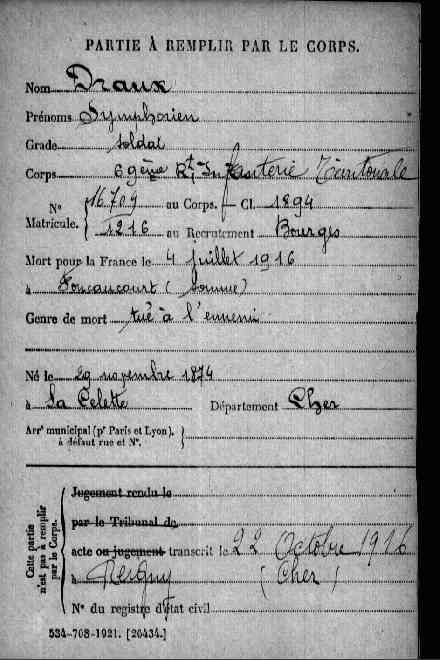 PARTIE À REMPLIR PAR LE CORPS.
Nom Draux
Prénoms Symphorien
Grade soldat
Corps 69ème Rt Infanterie Territoriale
Nº Matricule. 16.709 au Corps. — Cl. 1894
1216 au Recrutement Bourges
Mort pour la France le 4 juillet 1916
à Foucaucourt (Somme)
Genre de mort tué à l'ennemi
Né le 29 novembre 1874
à La Celette Département Cher
Arrt municipal (pr Paris et Lyon),
à défaut rue et Nº.
Cette partie
n'est pas à remplir
par le Corps.
Jugement rendu le
par le Tribunal de
acte ou jugement transcrit le 22 Octobre 1916
à (Cher)
Nº du registre d'état civil
534-708-1921. [26434.]